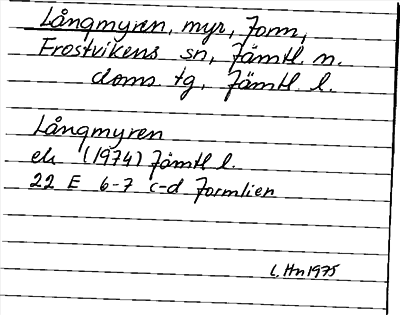 Långmyren, myr, Jorm,
Frostvikens sn, Jämtl. n.
doms tg, Jämtl. l.
Långmyren
ek (1974) Jämtl l.
22 E 6-7 c-d Jormlien
L. Hn 1975